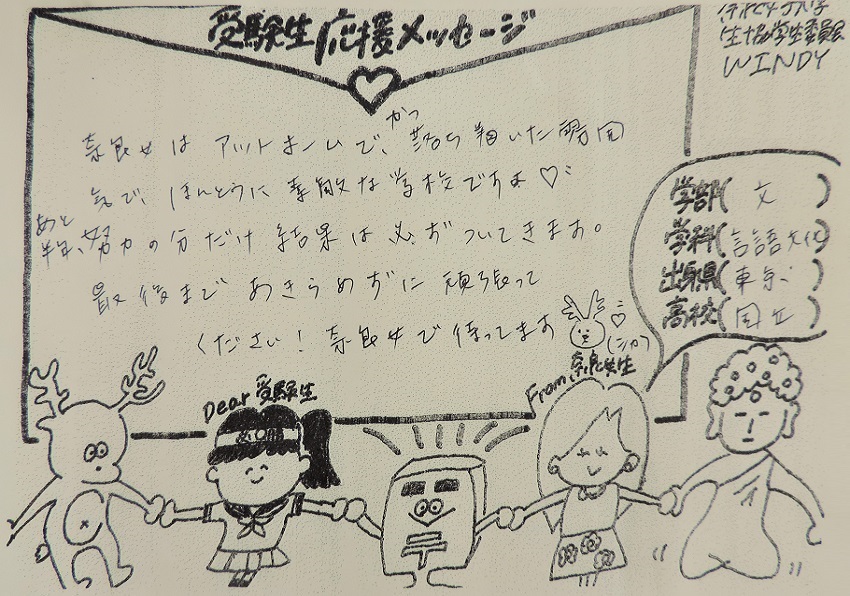 受験生応援メッセージ
生協学生委員会
WINDY
奈良女は アットホームで、かつ 落ち着いた雰囲
気で、ほんとうに素敵な学校ですよ♡
あと
半年、努力の分だけ結果は必ずついてきます。
最後まであきらめずに頑張って
ください！奈良女で待ってます
(シカ)
学部(文)
学科(言語文化)
出身県(東京)
高校(国立)
Dear 受験生
From 奈良女生
必勝
〒